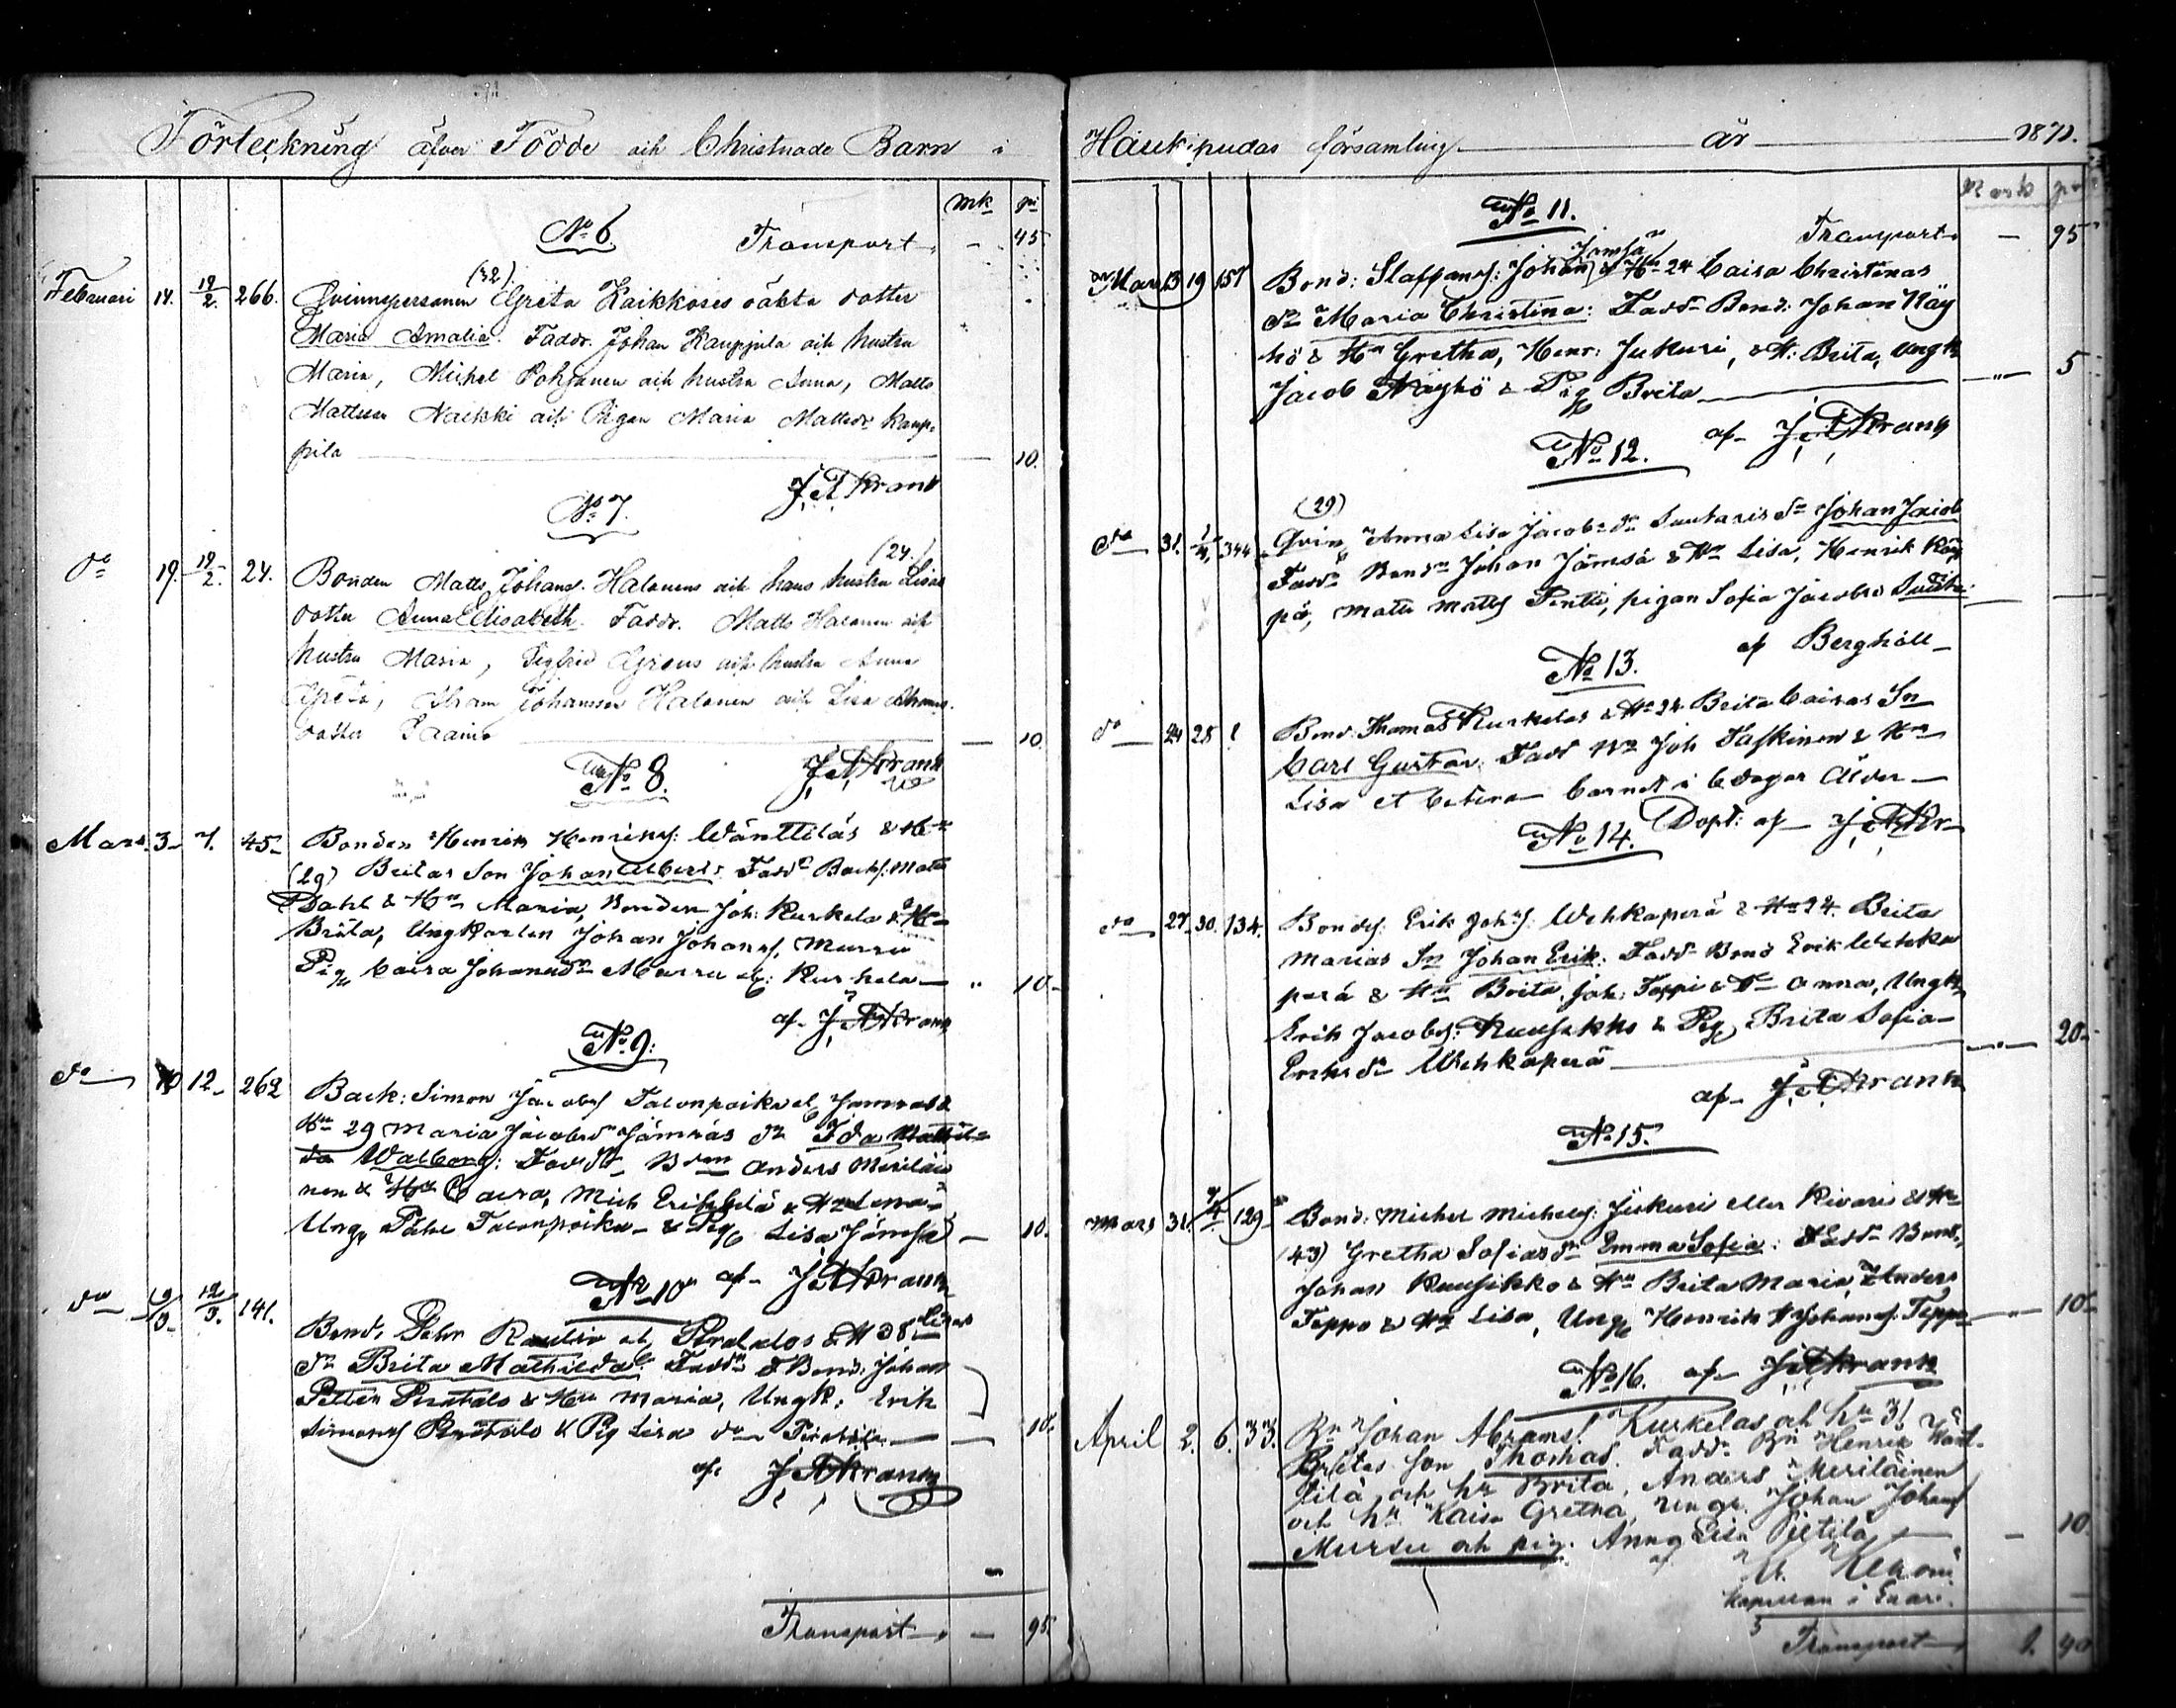 Förteckning öfver Födde och Christnade Barn i
mk pi
No 6. Transport - 45
Februari 14. 19/2. 266. Qvinnspersonen (32) Greta Kaikkoses oäkta dotter
Maria Amalia. Faddr. Johan Kauppila och hustru
Maria, Michel Pohjanen och hustru Anna, Matts
Mattsson Naikki och Pigan Maria Mattsdr Kaup-
pila — 10.
J. A. Krank
No 7.
do 19. 19/2. 24. Bonden Matts Johans. Halonens och hans hustru (24.) Lisas
dotter Anna Elisabeth. Faddr. Matts Halonen och
hustru Maria, Sigfrid och hustru Anna
Greta, Abram Johansson Halonen och Lisa
dotter — 10
No 8. J. A. Krank
Mars. 3 7. 45 Bonden Henrik Henriks: Wänttilás & Hu
(29) Britas Son Johan Albert: Fadd Backs: Matts
Dahl & Hu Maria, Bonden Joh: Kurkela & Hu
Brita, Ungkarlen Johan Johans. Mursu
Pig Caisa Johansdr Mursu el: Kurkela " 10
af J. A. Krank
No 9:
do 10 12 262 Back: Simon Jacobs Talonpoika el Jämsas &
Hu 29 Maria Jacobsdr Jämsäs dr Ida Mathil-
da Walborg: Fadd Bdn Anders Meriläi
nen & Hu Caisa, Mich Erikkilä & Hu Lena
Ung Talonpoika & Pig Lisa Jämsä 10.
No 10 af J. A. Krank
do 9/3 12/3. 141. Bond. Pehr el & H 38 Lisas
dr Brita Mathilda: Fadd Bond: Johan
Petter & Hu Maria, Ungk: Erik
Simons & Pig Lisa do — 10.
af J. A. Krank
Transport — 95
Haukipudas församling år 1871.
Mark pi
No 11.
Transport — 95
Mars 13 19 157 Bond: Staffans: Johan Jämsä & Hu 24 Caisa Christinas
dr Maria Christina: Fadd Bond: Johan Käy
hö & Hu Gretha, Henr: Jukuri, & H: Brita, Ungk
Jacob Käyhö & Pig Brita — " 5
af J. A. Krank
No 12.
(29)
do 31. 1/4 344 Qvin Anna Lisa Jacobsdr Santaris Sn Johan Jacob
Fadd Bond Johan Jämsä & Hu Lisa, Henrik
pä, Matts Matts Pentti, pigan Sofia Jacobsdr
af Berghäll
No 13.
do 24 28 1 Bond. Thomas Kurkelas & Hu 24 Brita Caisas Sn
Carl Gustav Fadd Joh Taskinen & Hu
Lisa et cetera barnet i 6 dagar ålder
No 14. Döpt: af J. A. Kr
do 27 30. 134. Bonds: Erik Johs: Wehkaperä & Hu 24. Brita
Marias Sn Johan Erik: Fadd Bond Erik Wehka
perä & Hu Brita, Joh: Teppi & H Anna, Ungk
Erik Jacobs: Kuusikko & Pig Brita Sofia
Eriksdr Wehkaperä — " 20
af J. A. Krank
No 15.
Mars 31. 7/4 129 Bond: Michel Michels: Jukuri eller Kivaris & Hu
(43) Gretha Sofias dr Emma Sofia: Fadd Bond,
Johan Kuusikko & Hu Brita Maria, Anders
Teppo & Hu Lisa, Ung Henrik Johans Teppo " 10
No 16. af J. A. Krank
April 2. 6. 33. Bn Johan Abrams. Kurkelas och hu 31
Britas Son Thomas. Faddr Bn Henrik Wänt-
tilä och hu Brita, Anders Meriläinen
och hu Kaisa Gretha, ungk. Johan Johans
Mursu och pig. Anna Lisa Pietilä — 10
af
kapellan i Enari.
Transport 1. 40